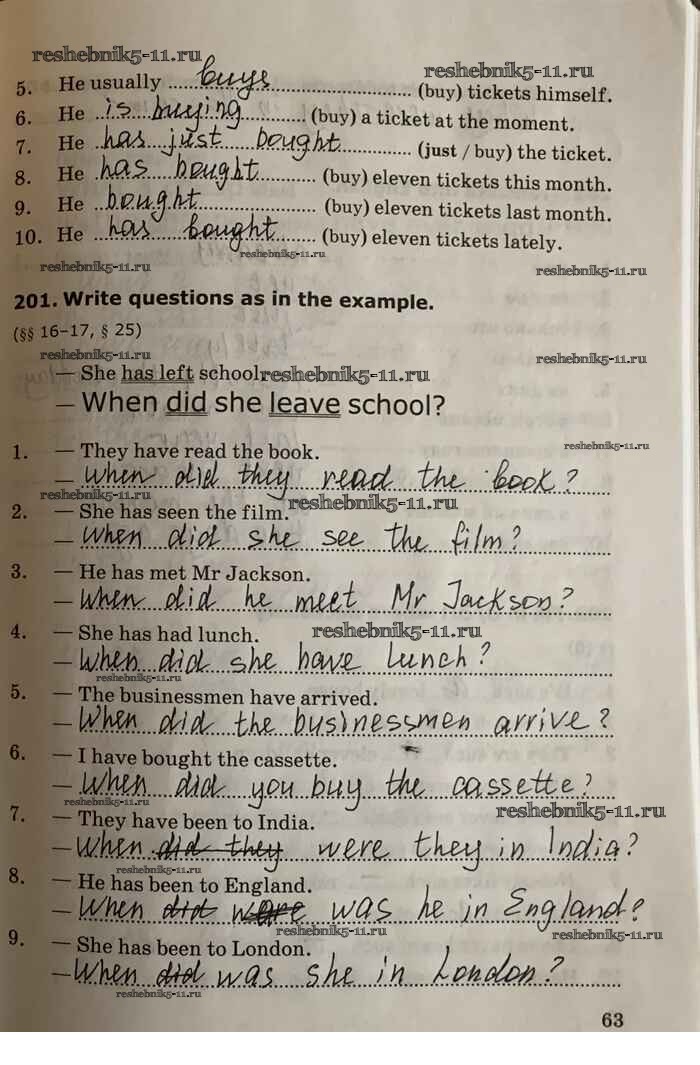 reshebnik5-11.ru reshebnik5-11.ru
5. He usually buys (buy) tickets himself.
6. He is buying (buy) a ticket at the moment.
7. He has just bought (just / buy) the ticket.
8. He has bought (buy) eleven tickets this month.
9. He bought (buy) eleven tickets last month.
10. He has bought (buy) eleven tickets lately.
reshebnik5-11.ru
reshebnik5-11.ru reshebnik5-11.ru
201. Write questions as in the example.
(§§ 16–17, § 25)
reshebnik5-11.ru reshebnik5-11.ru
— She has left school. reshebnik5-11.ru
— When did she leave school?
1. — They have read the book. reshebnik5-11.ru
— When did they read the book?
reshebnik5-11.ru reshebnik5-11.ru
2. — She has seen the film.
— When did she see the film?
3. — He has met Mr Jackson.
— When did he meet Mr Jackson?
4. — She has had lunch. reshebnik5-11.ru
— When did she have lunch?
reshebnik5-11.ru
5. — The businessmen have arrived.
— When did the businessmen arrive?
6. — I have bought the cassette.
— When did you buy the cassette?
reshebnik5-11.ru reshebnik5-11.ru
7. — They have been to India.
— When did they were they in India?
reshebnik5-11.ru
8. — He has been to England.
— When did were was he in England?
reshebnik5-11.ru reshebnik5-11.ru
9. — She has been to London.
— When did was she in London?
reshebnik5-11.ru
63